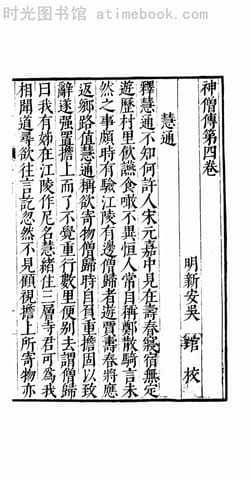 神僧傳第四卷
明新安吳琯校
慧通
釋慧通不知何許人宋元嘉中見在壽春寢宿無定
遊歷村里飲讌食噉不異恒人常自稱鄭散騎言未
然之事頗時有驗江陵有邊僧歸者遊賈壽春將應
返鄉路值慧通稱欲寄物僧歸時自有重擔固以致
辭遂强置擔上而了不覺重行數里便别去謂僧歸
曰我有姊在江陵作尼名慧緒住三層寺君可為我
相聞道尋欲往言訖忽然不見顧視擔上所寄物亦
古书网 www.atimebook.com
atimebook.com